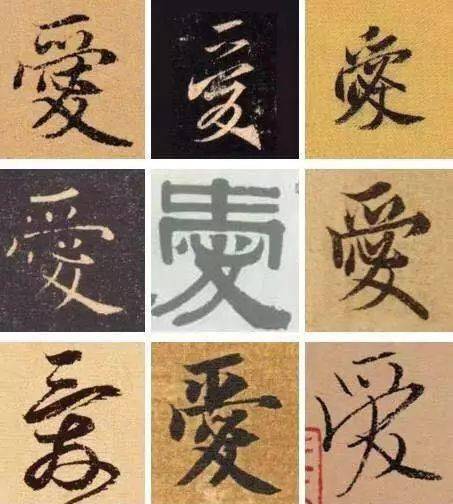 愛 愛 愛
愛 愛 愛
愛 愛 爱